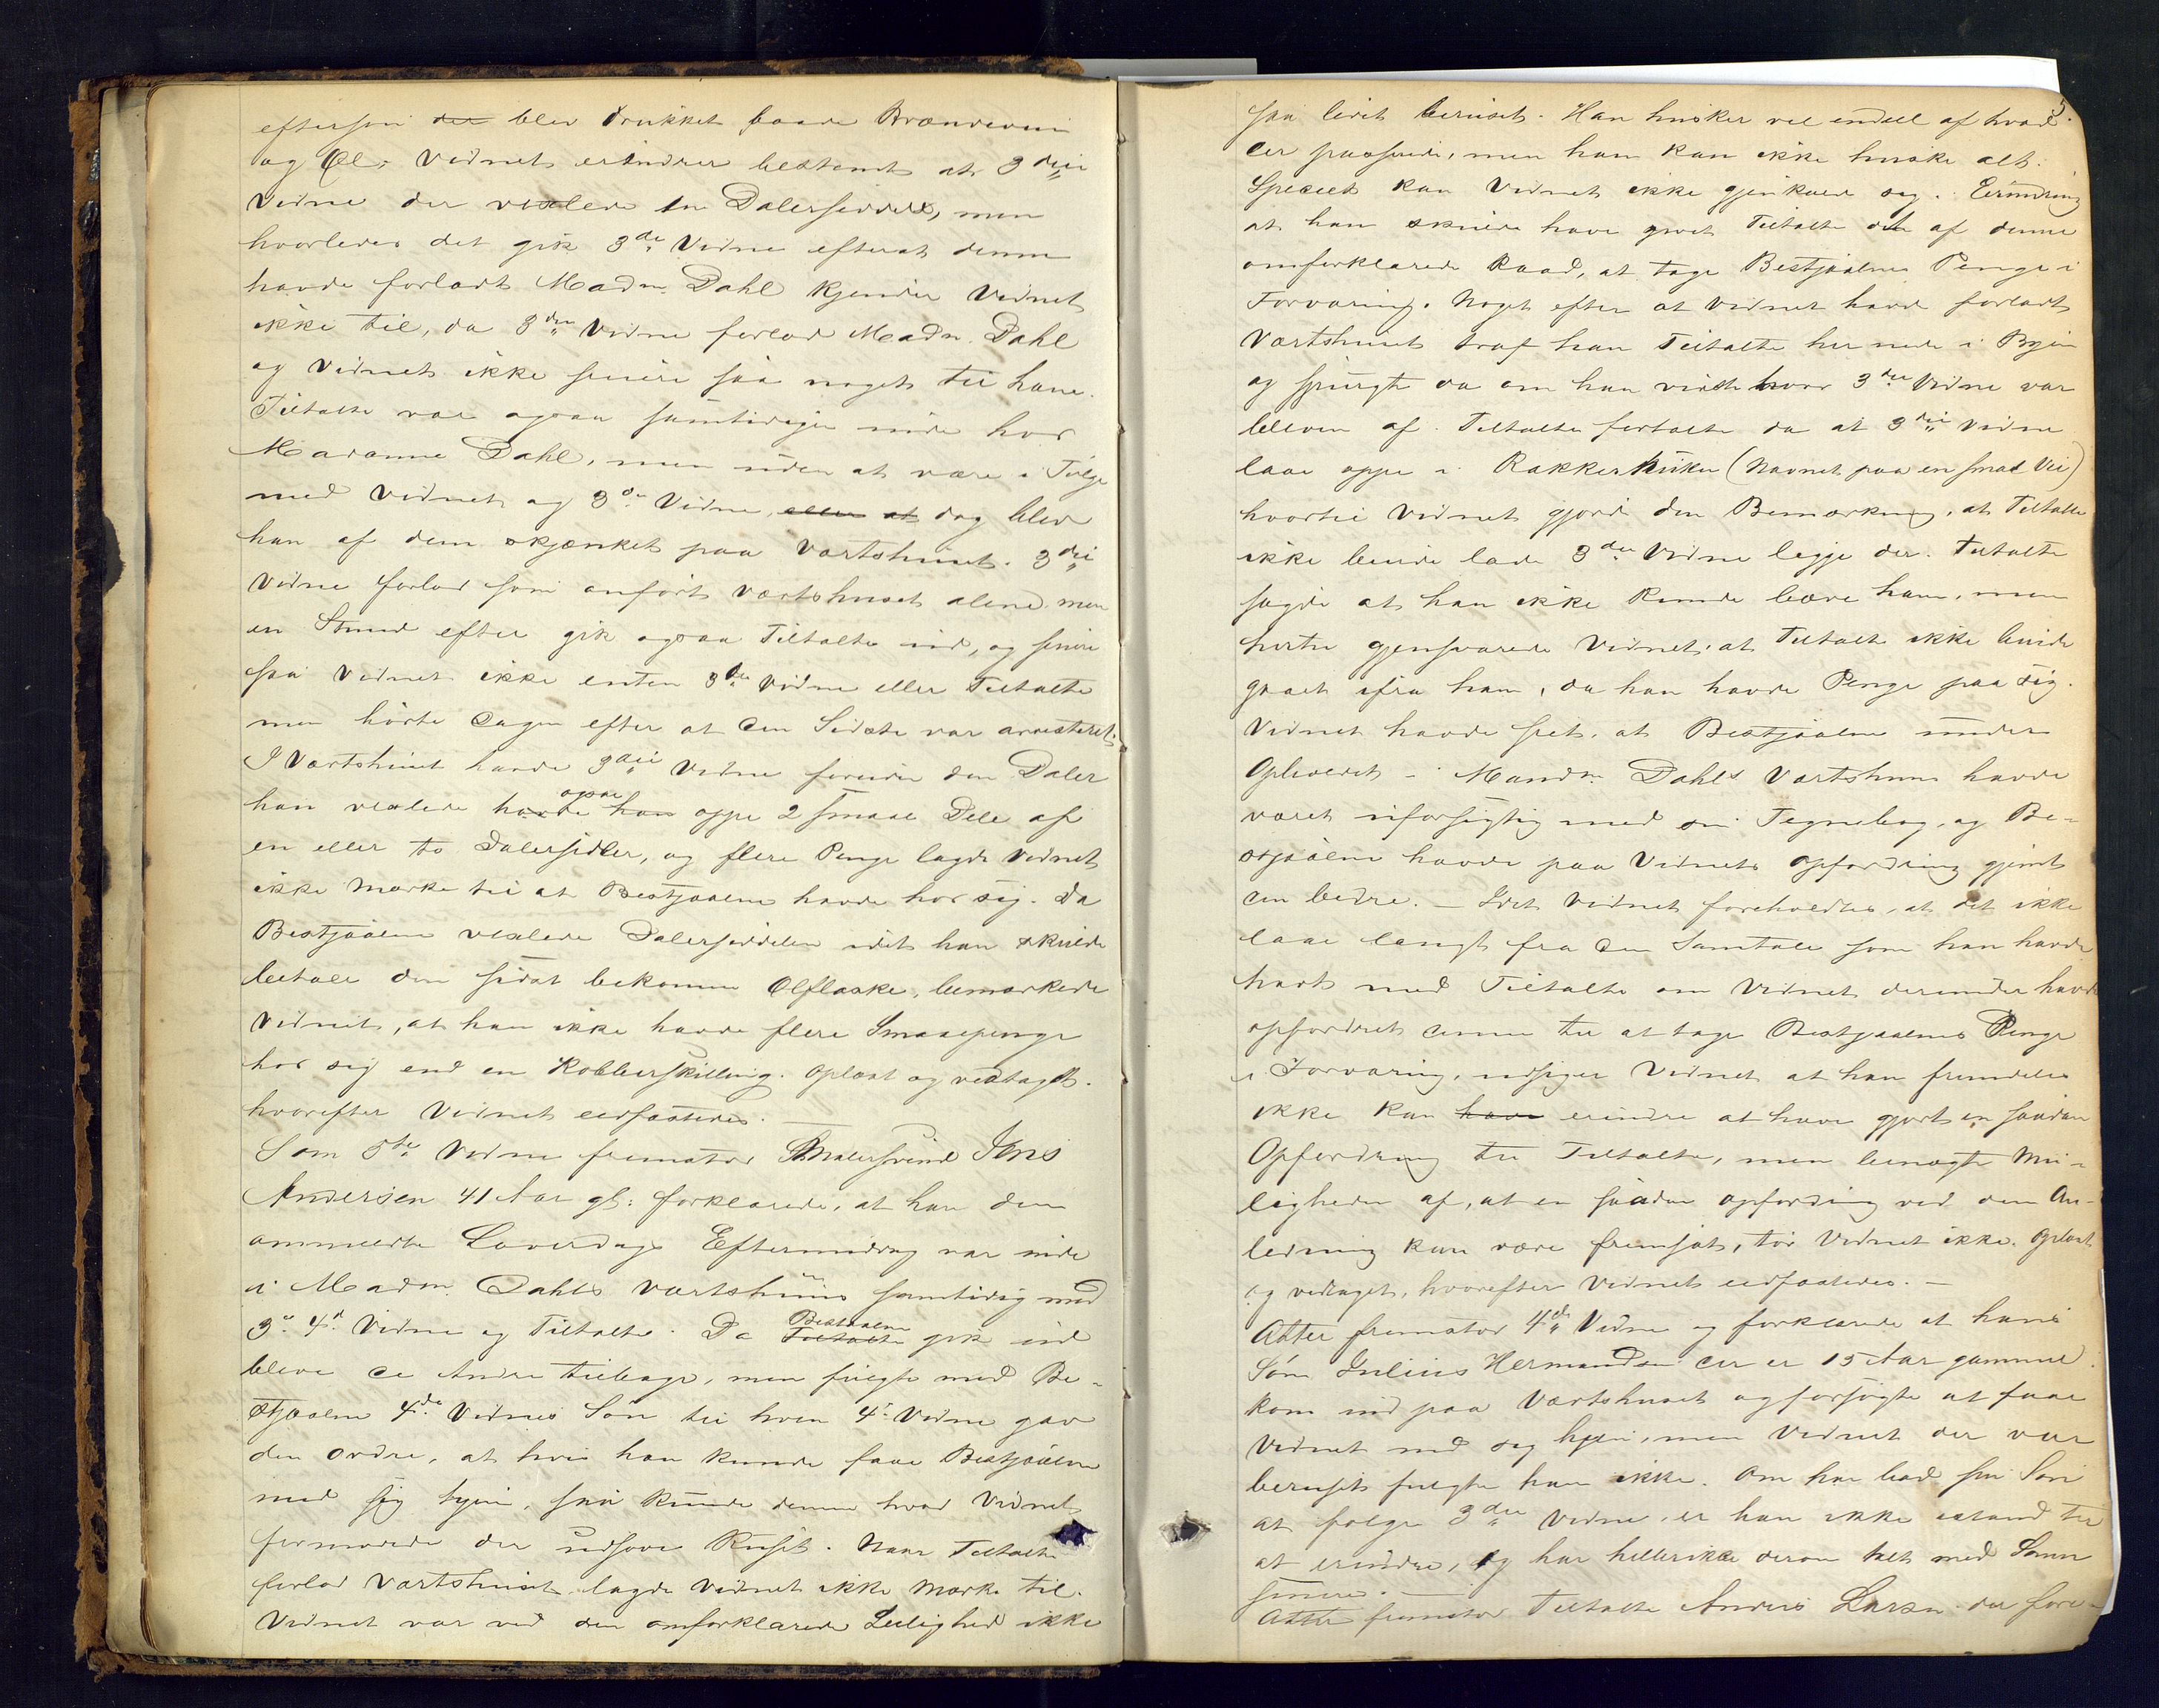 eftersom der blev drukket baade Brændeviin
og Øl. Vidnet erindrer bestemt at 3die
Vidne der vexlede en Dalerseddel, men
hvorledes det gik 3die Vidne efterat denne
havde forladt Madm. Dahl kjender Vidnet
ikke til, da 3die Vidne forlod Madm. Dahl
og Vidnet ikke senere saa noget til ham.
Tiltalte var ogsaa samtidigen inde hos
Madamme Dahl, men uden at være i Følge
med Vidnet og 3die Vidne, eller at dog blev
han af dem skjænket paa Værtshuset. 3die
Vidne forlod som anført Værtshuset alene men
en Stund efter gik ogsaa Tiltalte ud, og senere
saa Vidnet ikke enten 3die Vidne eller Tiltalte
men hørte Dagen efter at den Sidste var arresteret.
I Værtshuset havde 3die Vidne foruden den Daler
han vexlede havde ogsaa han oppe 2 smaae Dele af
en eller to Dalersedler, og flere Penge lagde Vidnet
ikke Mærke til at Bestjaalne havde hos sig. Da
Bestjaalne vexlede Dalerseddelen idet han skulde
betale den sidst bekomne Ølflaske, bemærkede
Vidnet, at han ikke havde flere Smaaepenge
hos sig end en Kobberskilling. Oplæst og vedtaget.
hvorefter Vidnet eedfæstedes.
Som 5te Vidne fremstod Malersvend Jens
Andersen 41 Aar gl: forklarede, at han den
ommeldte Løverdags Eftermiddag var inde
i Madm. Dahls Værtshuus samtidig med
3die 4de Vidne og Tiltalte. Da Tiltalte Bestjaalne gik ud
bleve de Andre tilbage, men fulgte med Be-
stjaalne 4de Vidnes Søn til hvem 4de Vidne gav
den Ordre, at hvis han kunde faae Bestjaalne
med sig hjem, saa kunde denne hvad Vidnet
formodede der udsove Ruset. Naar Tiltalte
forlod Værtshuset lagde Vidnet ikke Mærke til.
Vidnet var ved den omforklarede Leilighed ikke
saa lidet beruset. Han husker vel endeel af hvad
der passerede, men han kan ikke huske alt.
Specielt kan Vidnet ikke gjenkalde sig i Erindring
at han skulde have givet Tiltalte det af denne
omforklarede Raad, at tage Bestjaalnes Penge i
Forvaring. Noget efter at Vidnet havde forladt
Værtshuset traf han Tiltalte her nede i Byen
og spurgte da om han vidste hvor 3die Vidne var
bleven af. Tiltalte fortalte da at 3die Vidne
laae oppe i Rakkerkuken (Navnet paa en smal Vei)
hvortil Vidnet gjorde den Bemærkning, at Tiltalte
ikke burde lade 3die Vidne ligge der. Tiltalte
sagde at han ikke kunde bære ham, men
hertil gjensvarede Vidnet, at Tiltalte ikke burde
gaaet ifra ham, da han havde Penge paa sig.
Vidnet havde seet, at Bestjaalne under
Opholdet i Madm. Dahls Værtshuus havde
været uforsigtig med sin Tegnebog, og Be-
stjaalne havde paa Vidnets Opfordring gjemt
den bedre. – Idet Vidnet foreholdtes, at det ikke
laae langt fra den Samtale som han havde
havt med Tiltalte om Vidnet derunder havde
opfordret denne til at tage Bestjaalnes Penge
i Forvaring, udsiger Vidnet at han fremdeles
ikke kan have erindre at have gjort en saadan
Opfordring til Tiltalte, men benægte Mu-
ligheden af, at en saadan opfording ved den An-
ledning kan være fremsat, tør Vidnet ikke. Oplæst
og vedtaget, hvorefter Vidnet eedfæstedes. –
Atter fremstod 4de Vidne og forklarede at hans
Søn Julius Hermandsen der er 15 Aar gammel
kom ind paa Værtshuset og forsøgte at faae
Vidnet med sig hjem, men Vidnet der var
beruset fulgte ham ikke. Om han bad sin Søn
at følge 3die Vidne, er han ikke istand til
at erindre, og har heller ikke derom talt med Sønnen
senere.
Atter fremstod Tiltalte Anders Larsen der fore-